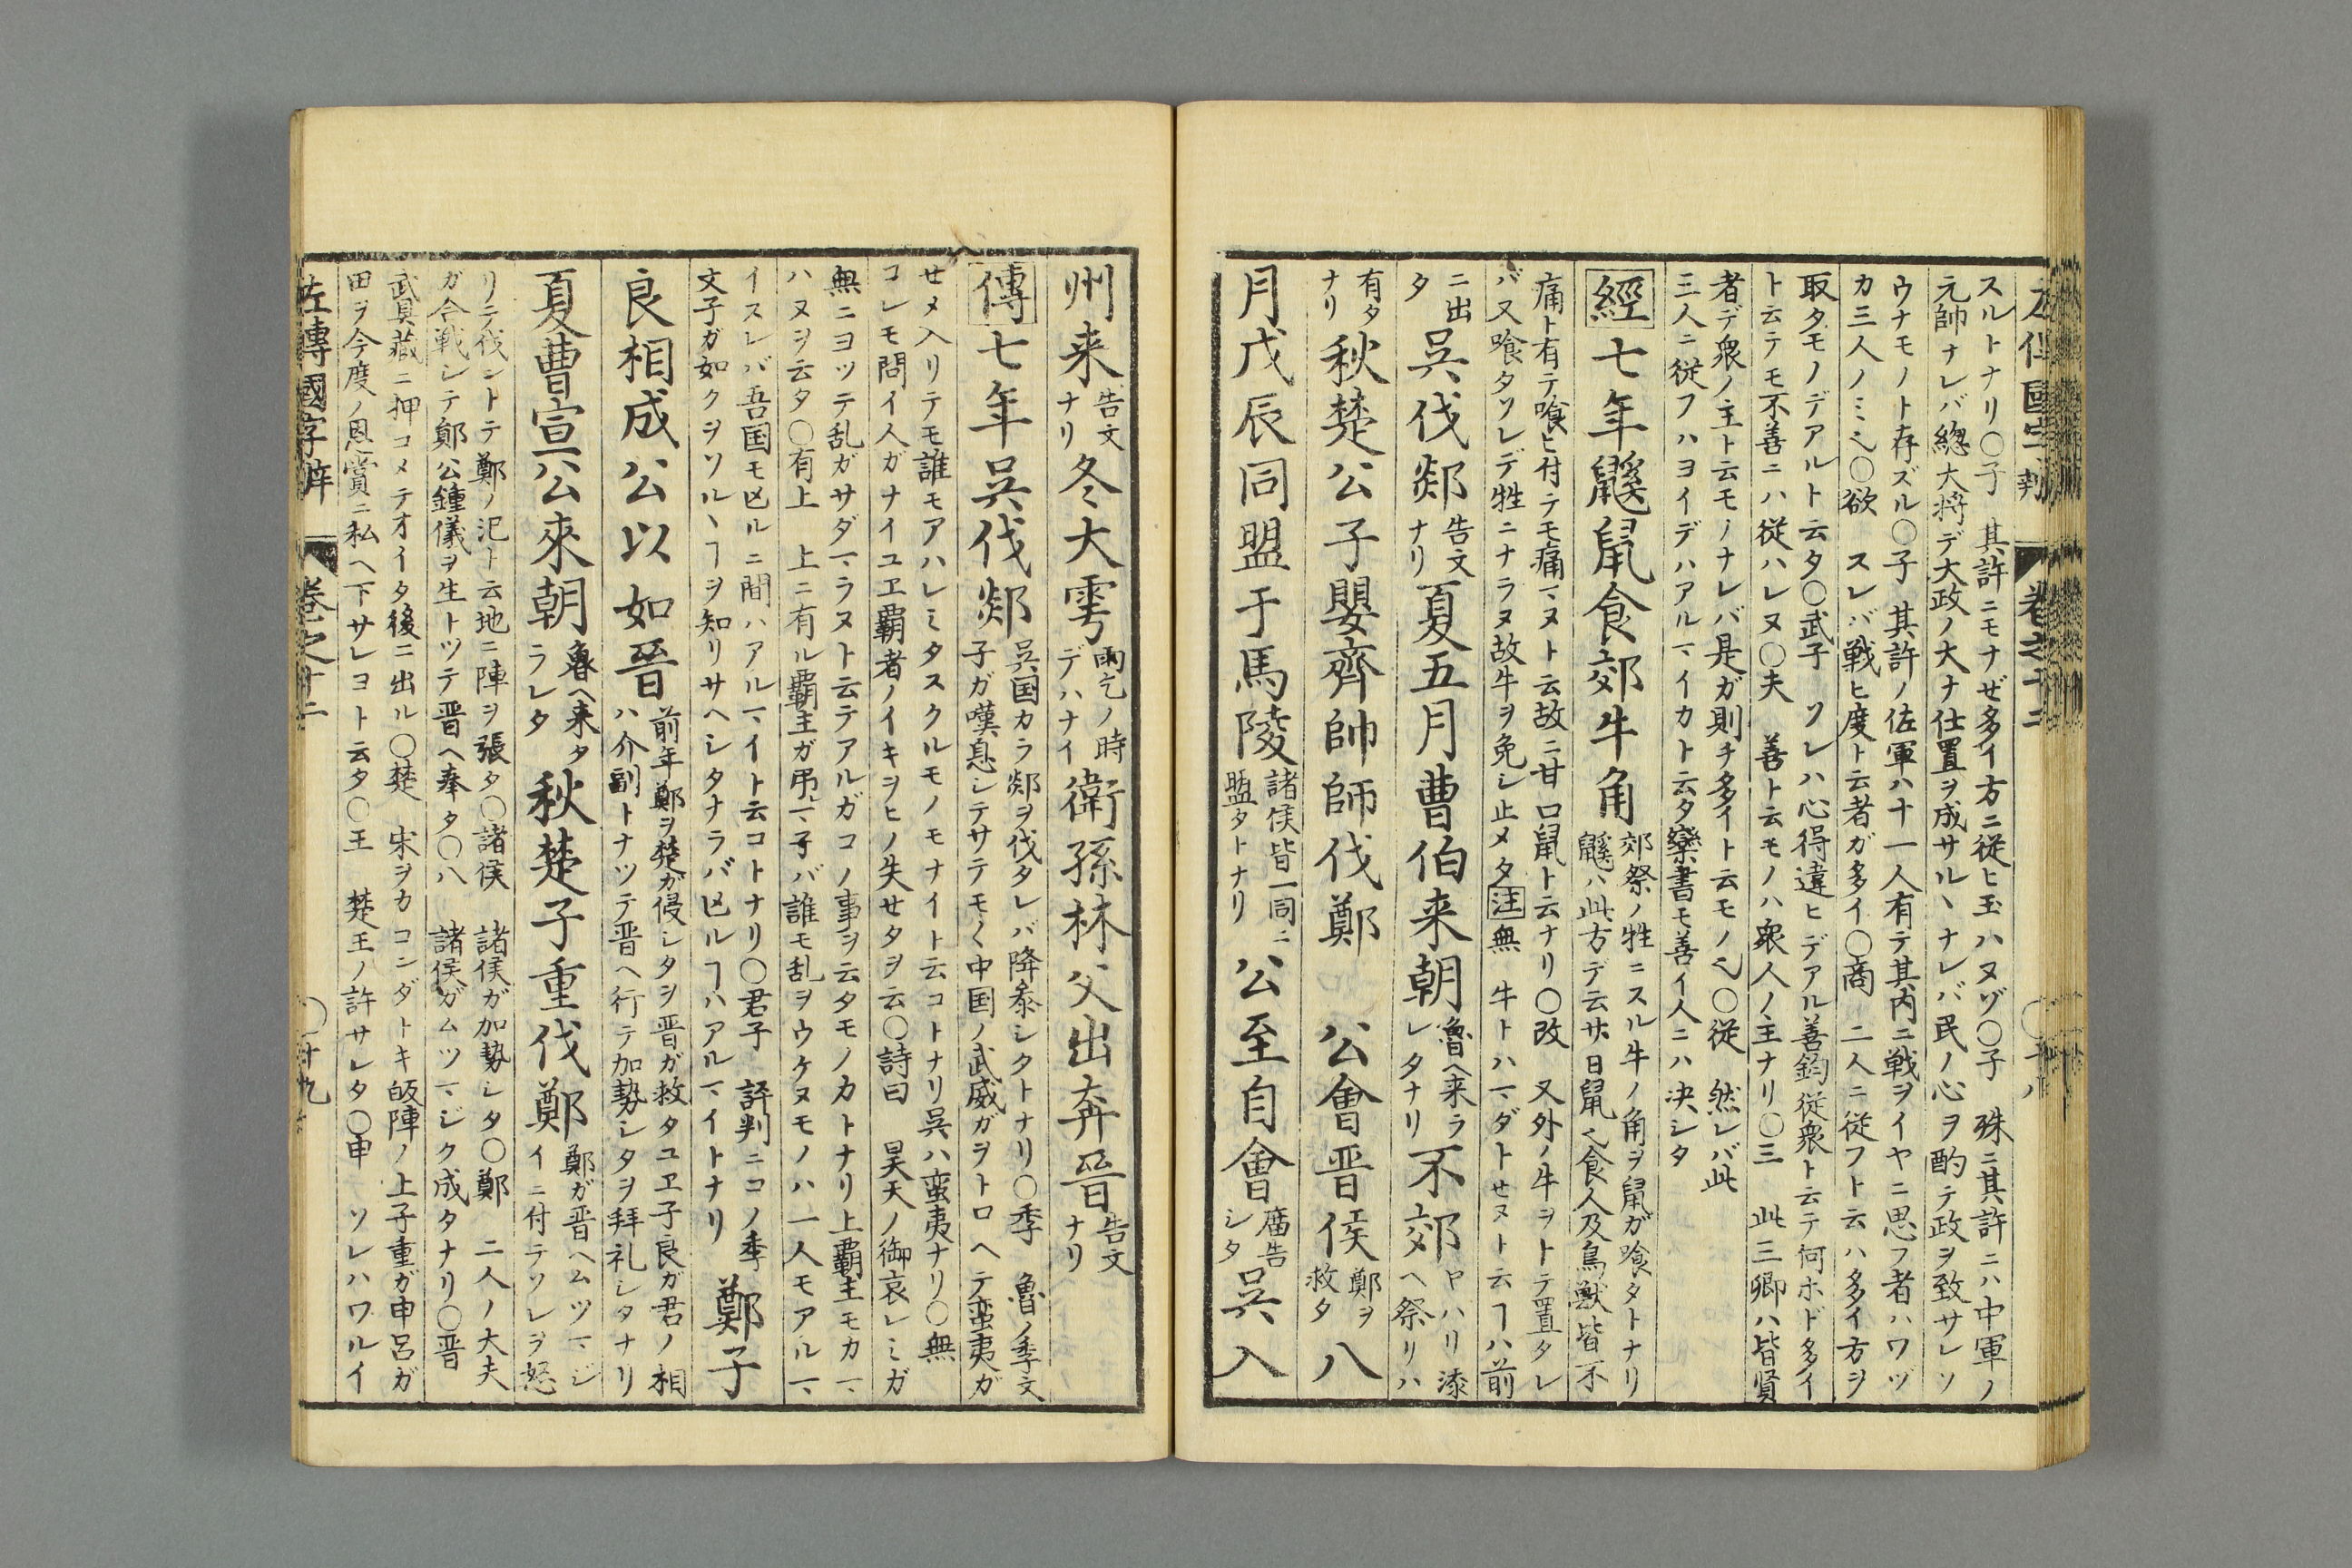 スルトナリ〇子　其許ニモナゼ多イ方ニ従ヒ玉ハヌゾ〇子　殊ニ其許ニハ中軍ノ
元帥ナレバ總大将デ大政ノ大ナ仕置ヲ成サルヽナレバ民ノ心ヲ酌テ政ヲ致サレソ
ウナモノト存ズル〇子　其許ノ佐軍ハ十一人有テ其内ニ戦ヲイヤニ思フ者ハワヅ
カ三人ノミ〇欲　スレバ戦ヒ度ト云者ガ多イ〇商　二人ニ従フト云ハ多イ方ヲ
取タモノデアルト云タ〇武子　ソレハ心得違ヒデアル善鈞従衆ト云テ何ホド多イ
ト云テモ不善ニハ従ハレヌ〇夫　善ト云モノハ衆人ノ主ナリ〇三　此三卿ハ皆賢
者デ衆ノ主ト云モノナレバ是ガ則チ多イト云モノ〇従　然レバ此
三人ニ従フハヨイデハアルマイカト云タ欒書モ善イ人ニハ決シタ
經七年鼷鼠食郊牛角
郊祭ノ牲ニスル牛ノ角ヲ鼠ガ喰タトナリ
鼷ハ此方デ云廿日鼠食人及鳥獣皆不
痛ト有テ喰ヒ付テモ痛マヌト云故ニ甘口鼠ト云ナリ〇改　又外ノ牛ヲトテ置タレ
バ又喰タソレデ牲ニナラヌ故牛ヲ免シ止メタ注無　牛トハマダトセヌト云ヿハ前
ニ出タ呉伐郯告文ナリ夏五月曹伯来朝魯ヘ来ラレタナリ不郊ヤハリ漆ヘ祭リハ
有タナリ秋楚公子嬰齊帥師伐鄭　公會晋侯鄭ヲ救タ八
月戊辰同盟于馬陵諸侯皆一同ニ盟タトナリ公至自會廟告シタ呉入
州来告文ナリ冬大雩雨乞ノ時デハナイ衛孫林父出奔晋告文ナリ
傳七年呉伐郯
呉国カラ郯ヲ伐タレバ降参シタトナリ〇季　魯ノ季文
子ガ嘆息シテサテモ〱中国ノ武威ガヲトロヘテ蛮夷ガ
せメ入リテモ誰モアハレミタスクルモノモナイト云コトナリ呉ハ蛮夷ナリ〇無
コレモ問イ人ガナイユヱ覇者ノイキヲヒノ失セタヲ云〇詩曰　昊天ノ御哀レミガ
無ニヨツテ乱ガサダマラヌト云テアルガコノ事ヲ云タモノカトナリ上覇主モカマ
ハヌヲ云タ〇有上　上ニ有ル覇主ガ吊マ子バ誰モ乱ヲウケヌモノハ一人モアルマ
イスレバ吾国モ凶ルニ間ハアルマイト云コトナリ〇君子　評判ニコノ季
文子ガ如クヲソルヽヿヲ知リサヘシタナラバ凶ルヿハアルマイトナリ
鄭子
良相成公以如晉
前年鄭ヲ楚ガ侵シタヲ晋ガ救タユヱ子良ガ君ノ相
ハ介副トナツテ晋ヘ行テ加勢シタヲ拜礼シタナリ
夏曹宣公來朝魯ヘ来タラレタ秋楚子重伐鄭鄭ガ晋ヘムツマジイニ付テソレヲ怒
リテ伐ントテ鄭ノ氾ト云地ニ陣ヲ張タ〇諸侯　諸侯ガ加勢シタ〇鄭　二人ノ大夫
ガ合戦シテ鄭公鍾儀ヲ生トツテ晋ヘ奉タ〇八　諸侯ガムツマジク成タナリ〇晋
武具藏ニ押コメテオイタ後ニ出ル〇楚　宋ヲカコンダトキ皈陣ノ上子重ガ申呂ガ
田ヲ今度ノ恩賞ニ私ヘ下サレヨト云タ〇王　楚王ノ許サレタ〇申　ソレハワルイ
左傳國字辨　卷之十二　〇十九